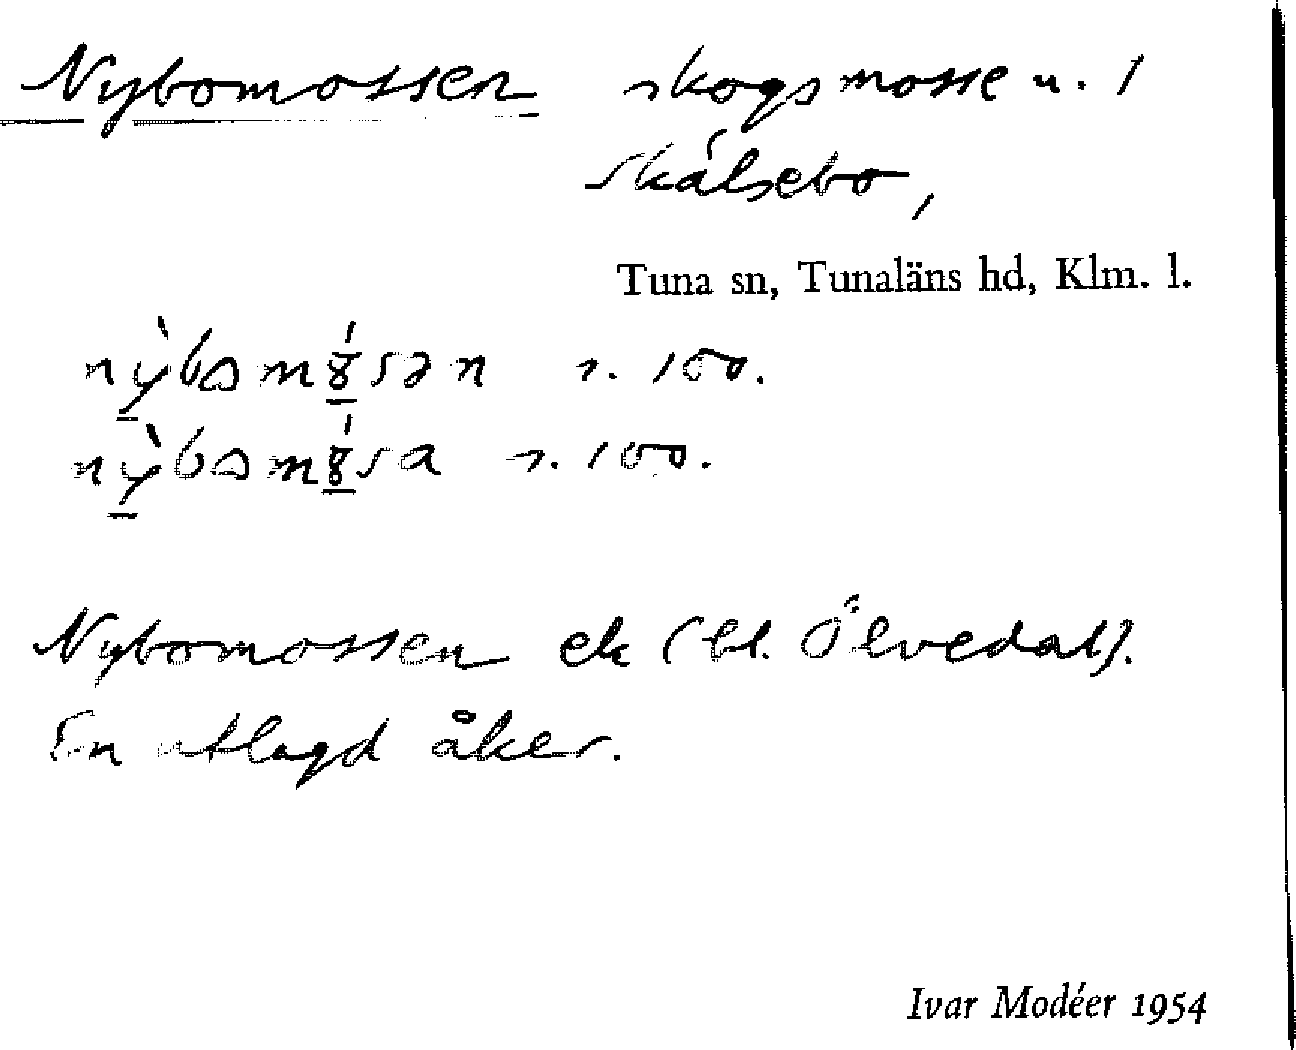 Nybomossen skogsmosse u. 1
Skålsebo,
Tuna sn, Tunaläns hd, Klm. l.
s. 100.
s. 100.
Nybomossen ek (bl. Ölvedal).
En utlagd åker.
Ivar Modéer 1954